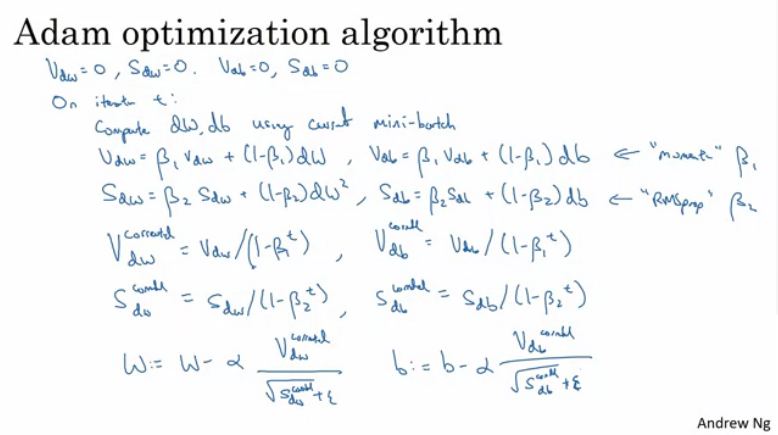 Adam optimization algorithm
V_dw = 0, S_dw = 0. V_db = 0, S_db = 0
On iteration t:
Compute dw, db using current mini-batch
V_dw = β₁ V_dw + (1-β₁) dW, V_db = β₁ V_db + (1-β₁) db ← "momentum" β₁
S_dw = β₂ S_dw + (1-β₂) dW², S_db = β₂ S_db + (1-β₂) db ← "RMSprop" β₂
V_dw^corrected = V_dw/(1-β₁^t), V_db^corrected = V_db/(1-β₁^t)
S_dw^corrected = S_dw/(1-β₂^t), S_db^corrected = S_db/(1-β₂^t)
W := W - α V_dw^corrected / √S_dw^corrected + ε b := b - α V_db^corrected / √S_db^corrected + ε
Andrew Ng